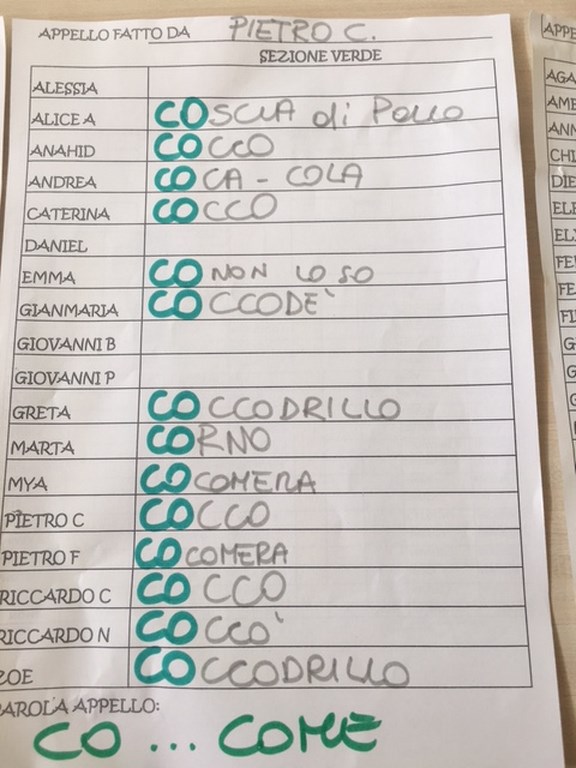 APPELLO FATTO DA PIETRO C.
SEZIONE VERDE
ALESSIA
ALICE A COSCIA di POLLO
ANAHID COCCO
ANDREA COCA - COLA
CATERINA COCCO
DANIEL
EMMA CO NON LO SO
GIANMARIA COCCODE`
GIOVANNI B
GIOVANNI P
GRETA COCCODRILLO
MARTA CORNO
MYA COCOMERA
PIETRO C COCCO
PIETRO F COCOMERA
RICCARDO C COCCO
RICCARDO N COCCO`
ZOE COCCODRILLO
PAROLA APPELLO:
CO ... COME
APPE
AGA
AME
ANN
CHI
DIE
ELE
ELY
FE
FE
FI
G
G
G